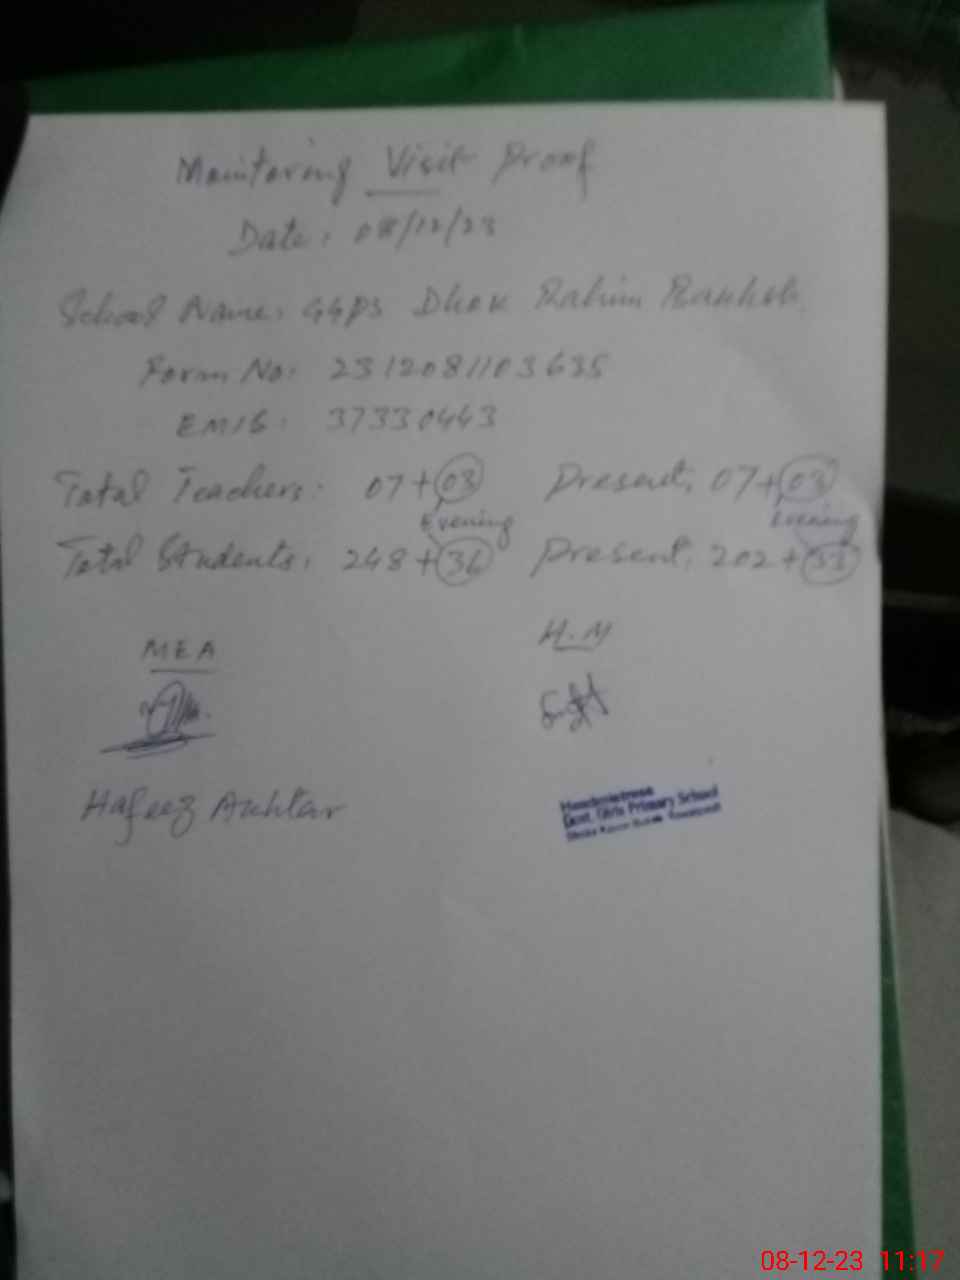 Monitoring Visit Proof
Date: 08/12/23
School Name: GGPS Dhok Rahim Bakhsh
Form No: 2312081103635
EMIS: 37330443
Total Teachers: 07+03 Present: 07+03
Evening Evening
Total Students: 248+36 Present: 202+33
MEA H.M
Hafeez Akhtar
Headmistress
Govt. Girls Primary School
08-12-23 11:17